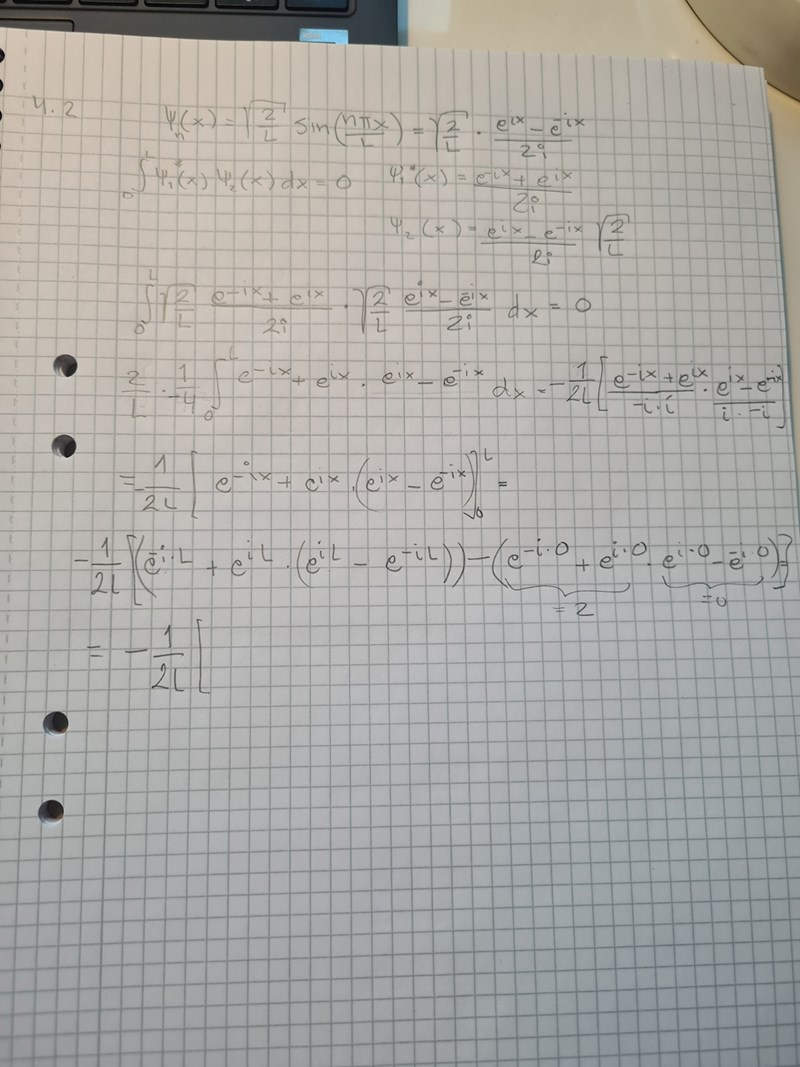 4.2 ψₙ(x) = √(2/L) sin(nπx/L) = √(2/L) · (e^{ix} − e^{-ix})/2i
∫₀ᴸ ψ₁*(x) ψ₂(x) dx = 0 ψ₁*(x) = (e^{-ix} + e^{ix})/2i
ψ₂(x) = (e^{ix} − e^{-ix})/2i √(2/L)
∫₀ᴸ √(2/L) (e^{-ix} + e^{ix})/2i · √(2/L) (e^{ix} − e^{-ix})/2i dx = 0
2/L · 1/-4 ∫₀ᴸ e^{-ix} + e^{ix} · e^{ix} − e^{-ix} dx = -1/2L [(e^{-ix} + e^{ix})/(-i·i) · (e^{ix} − e^{-ix})/(i·-i)]
= -1/2L [e^{-ix} + e^{ix} · (e^{ix} − e^{-ix})]₀ᴸ =
-1/2L [(e^{-i·L} + e^{iL} · (e^{iL} − e^{-iL})) − (e^{-i·0} + e^{i·0} · e^{i·0} − e^{-i·0})]
= 2 = 0
= -1/2L [